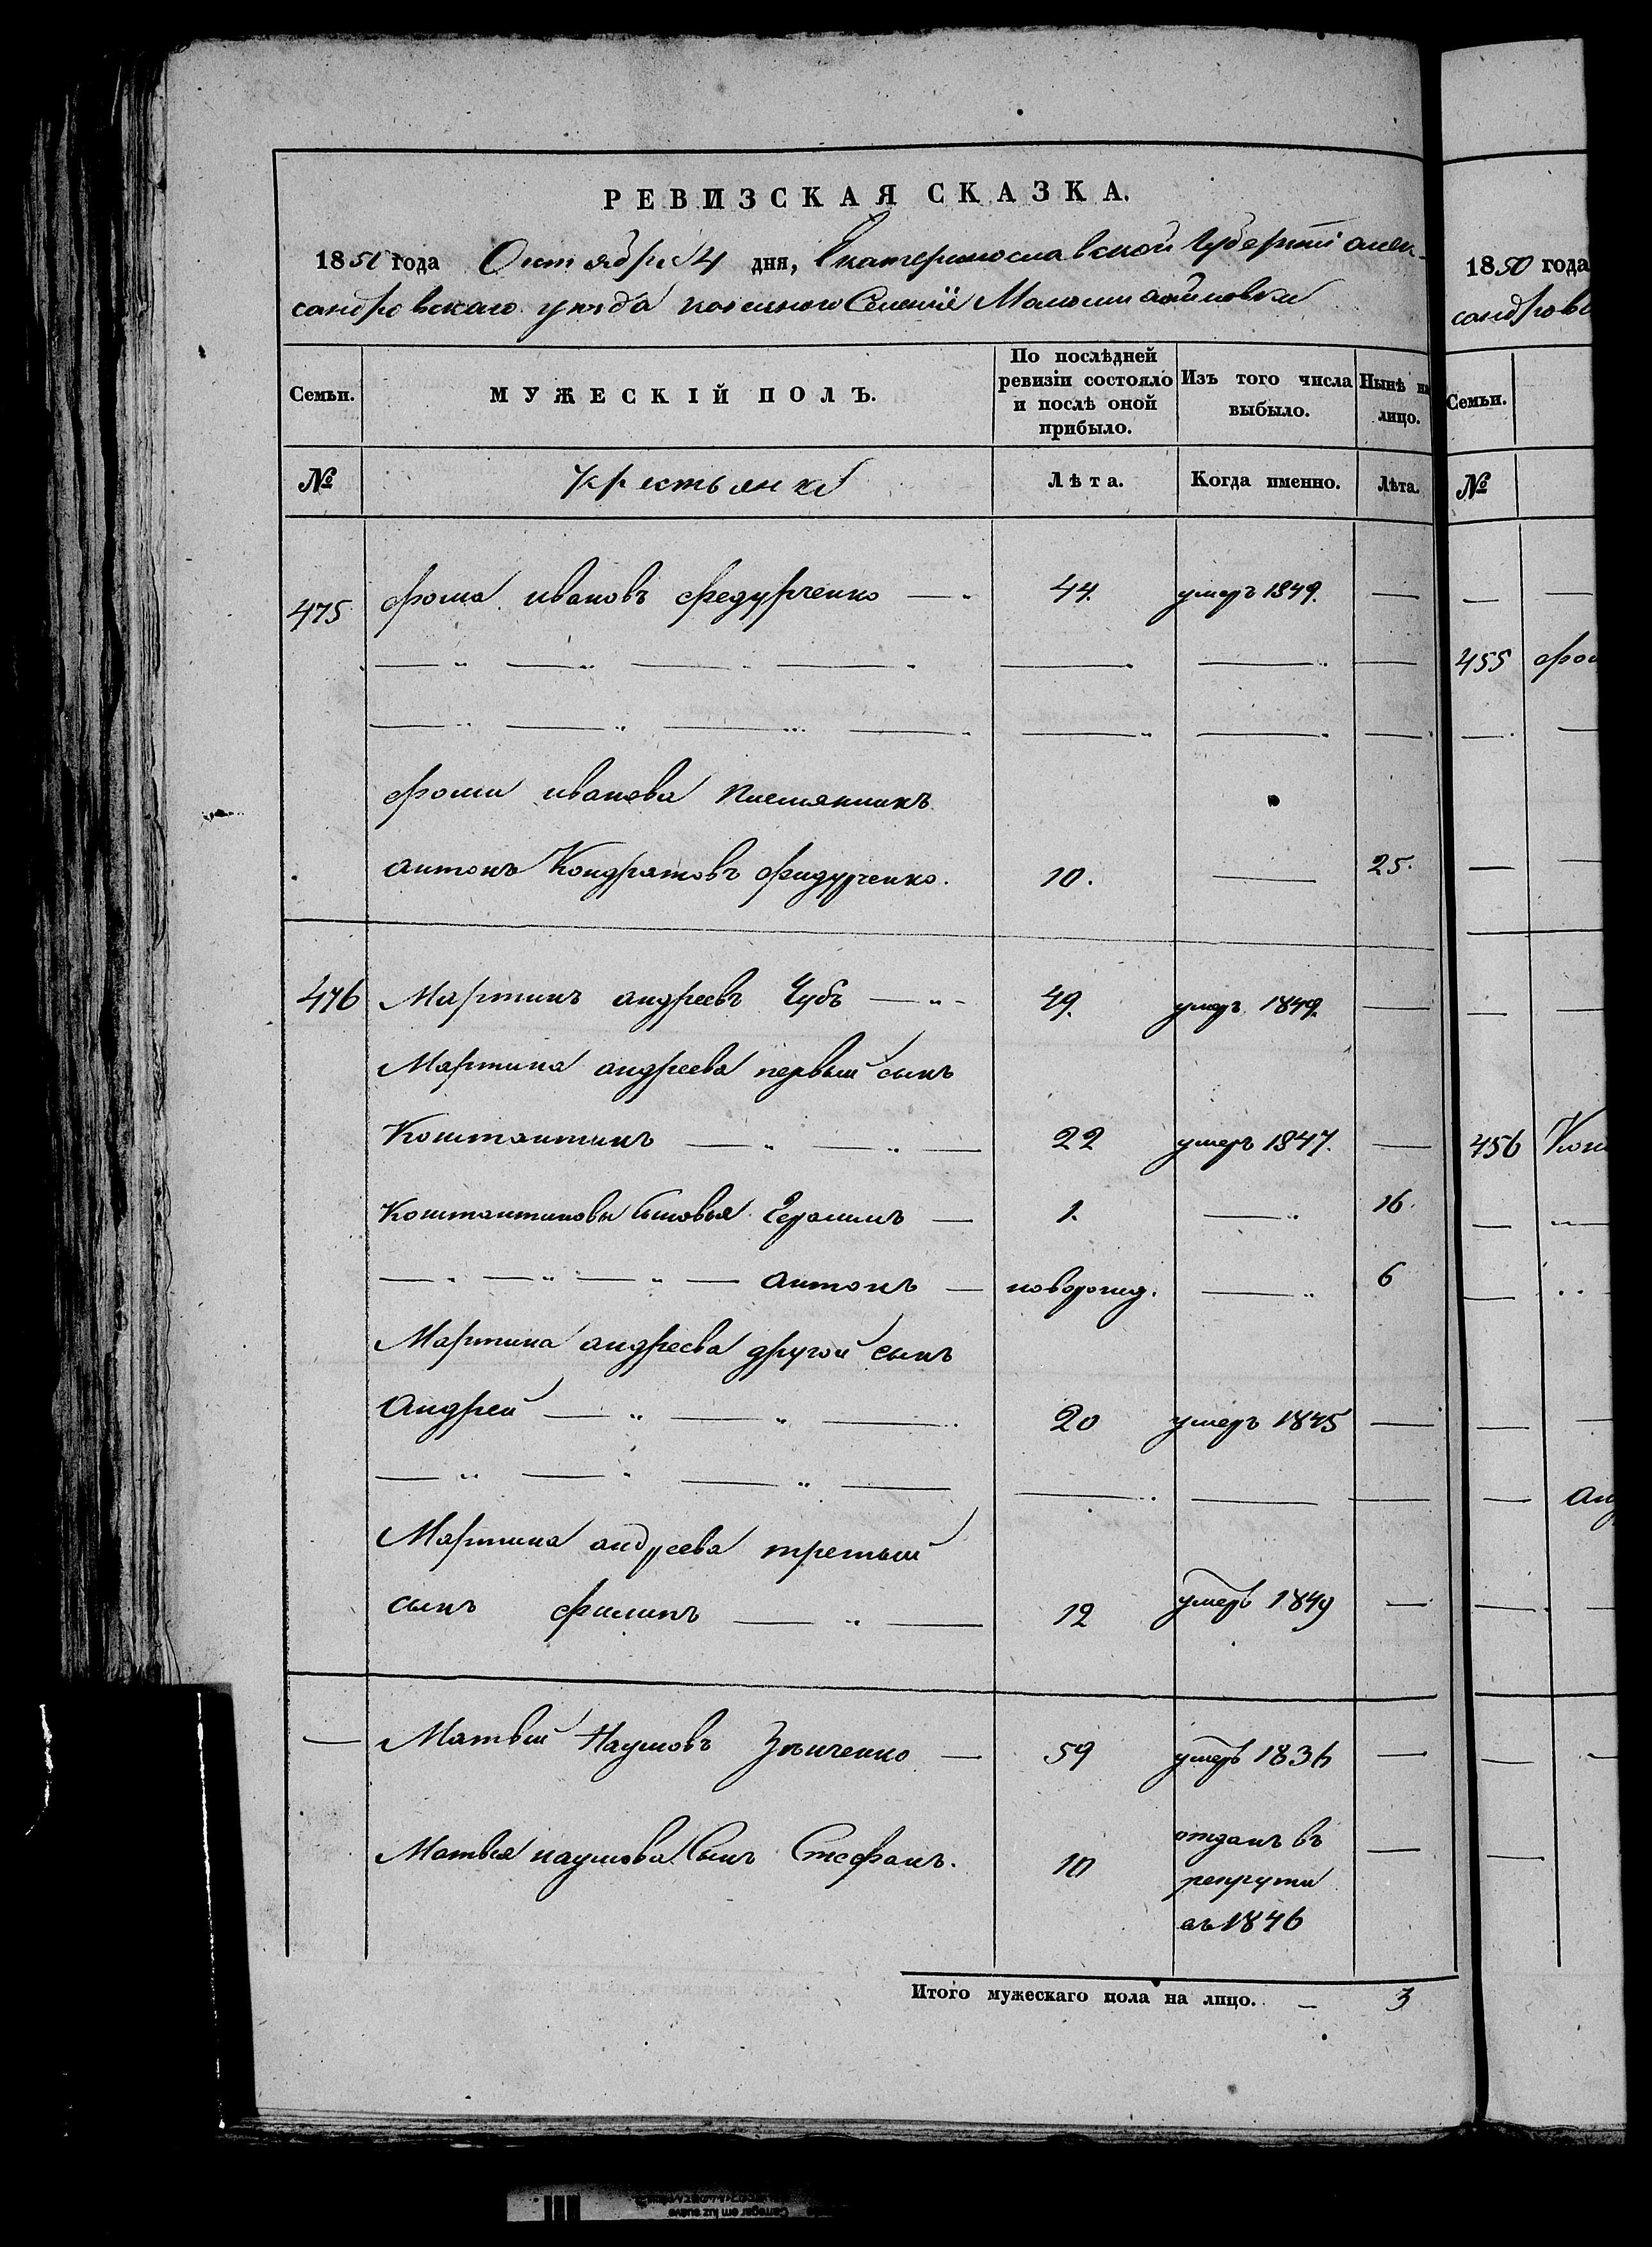 РЕВИЗСКАЯ СКАЗКА.
1850 года Октября 4 дня, Екатеринославской Губернии Алек-
сандровскаго уезда казенного Селенія Маломихайловки
Семьи.
МУЖЕСКІЙ ПОЛЪ.
По послѣдней
ревизіи состояло
и послѣ оной
прибыло.
Изъ того числа
выбыло.
Нынѣ на
лицо.
№
Крестьянъ
Лѣта.
Когда именно.
Лѣта.
475 Фома Ивановъ Федурченко — 44. умеръ 1849. —
Фомы Иванова племянникъ
Антонъ Кондратовъ Фидурченко. 10. — 25.
476 Мартинъ Андреевъ Чубъ — 49. умеръ 1849. —
Мартина Андреева первый сынъ
Константинъ — 22 умеръ 1847. —
Константиновы сыновья Герасимъ — 1. — 16.
— Антонъ — новорожд. — 6
Мартина Андреева другой сынъ
Андрей — 20 умеръ 1845 —
Мартина Андреева третьий
сынъ Филипъ — 12 умеръ 1849 —
— Матвей Наумовъ Зѣнченко — 59 умеръ 1836 —
Матвея Наумова Сынъ Стефанъ. 10 отданъ въ —
рекруты
въ 1846
Итого мужескаго пола на лицо. — 3
1850 года
сандровс
Семьи.
№
455 Фом
456 Кон
Анд